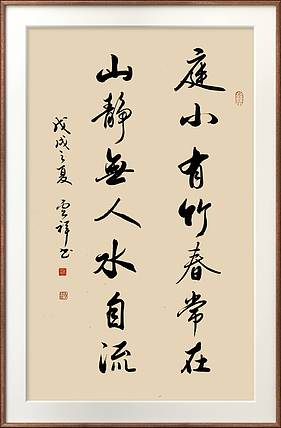 庭小有竹春常在
山静無人水自流
戊戌之夏 雲祥书